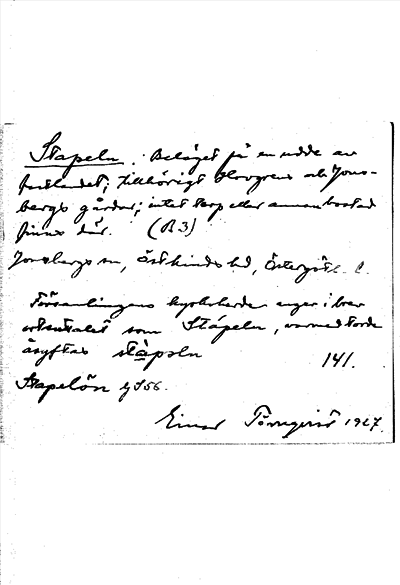 Stapeln. Beläget på en udde av
fastlandet; tillhörigt Hovgren och Jons-
bergs gårdar; intet torp eller annan bostad
finns där. (R3)
Jonsbergs sn, Östkinds hd, Östergötl. l.
Församlingens kyrkoherde anger i brev
ortsuttalet som Stápeln, varmed torde
åsyftas stàpeln 141.
Stapelön GS56.
Einar Törnqvist 1927.